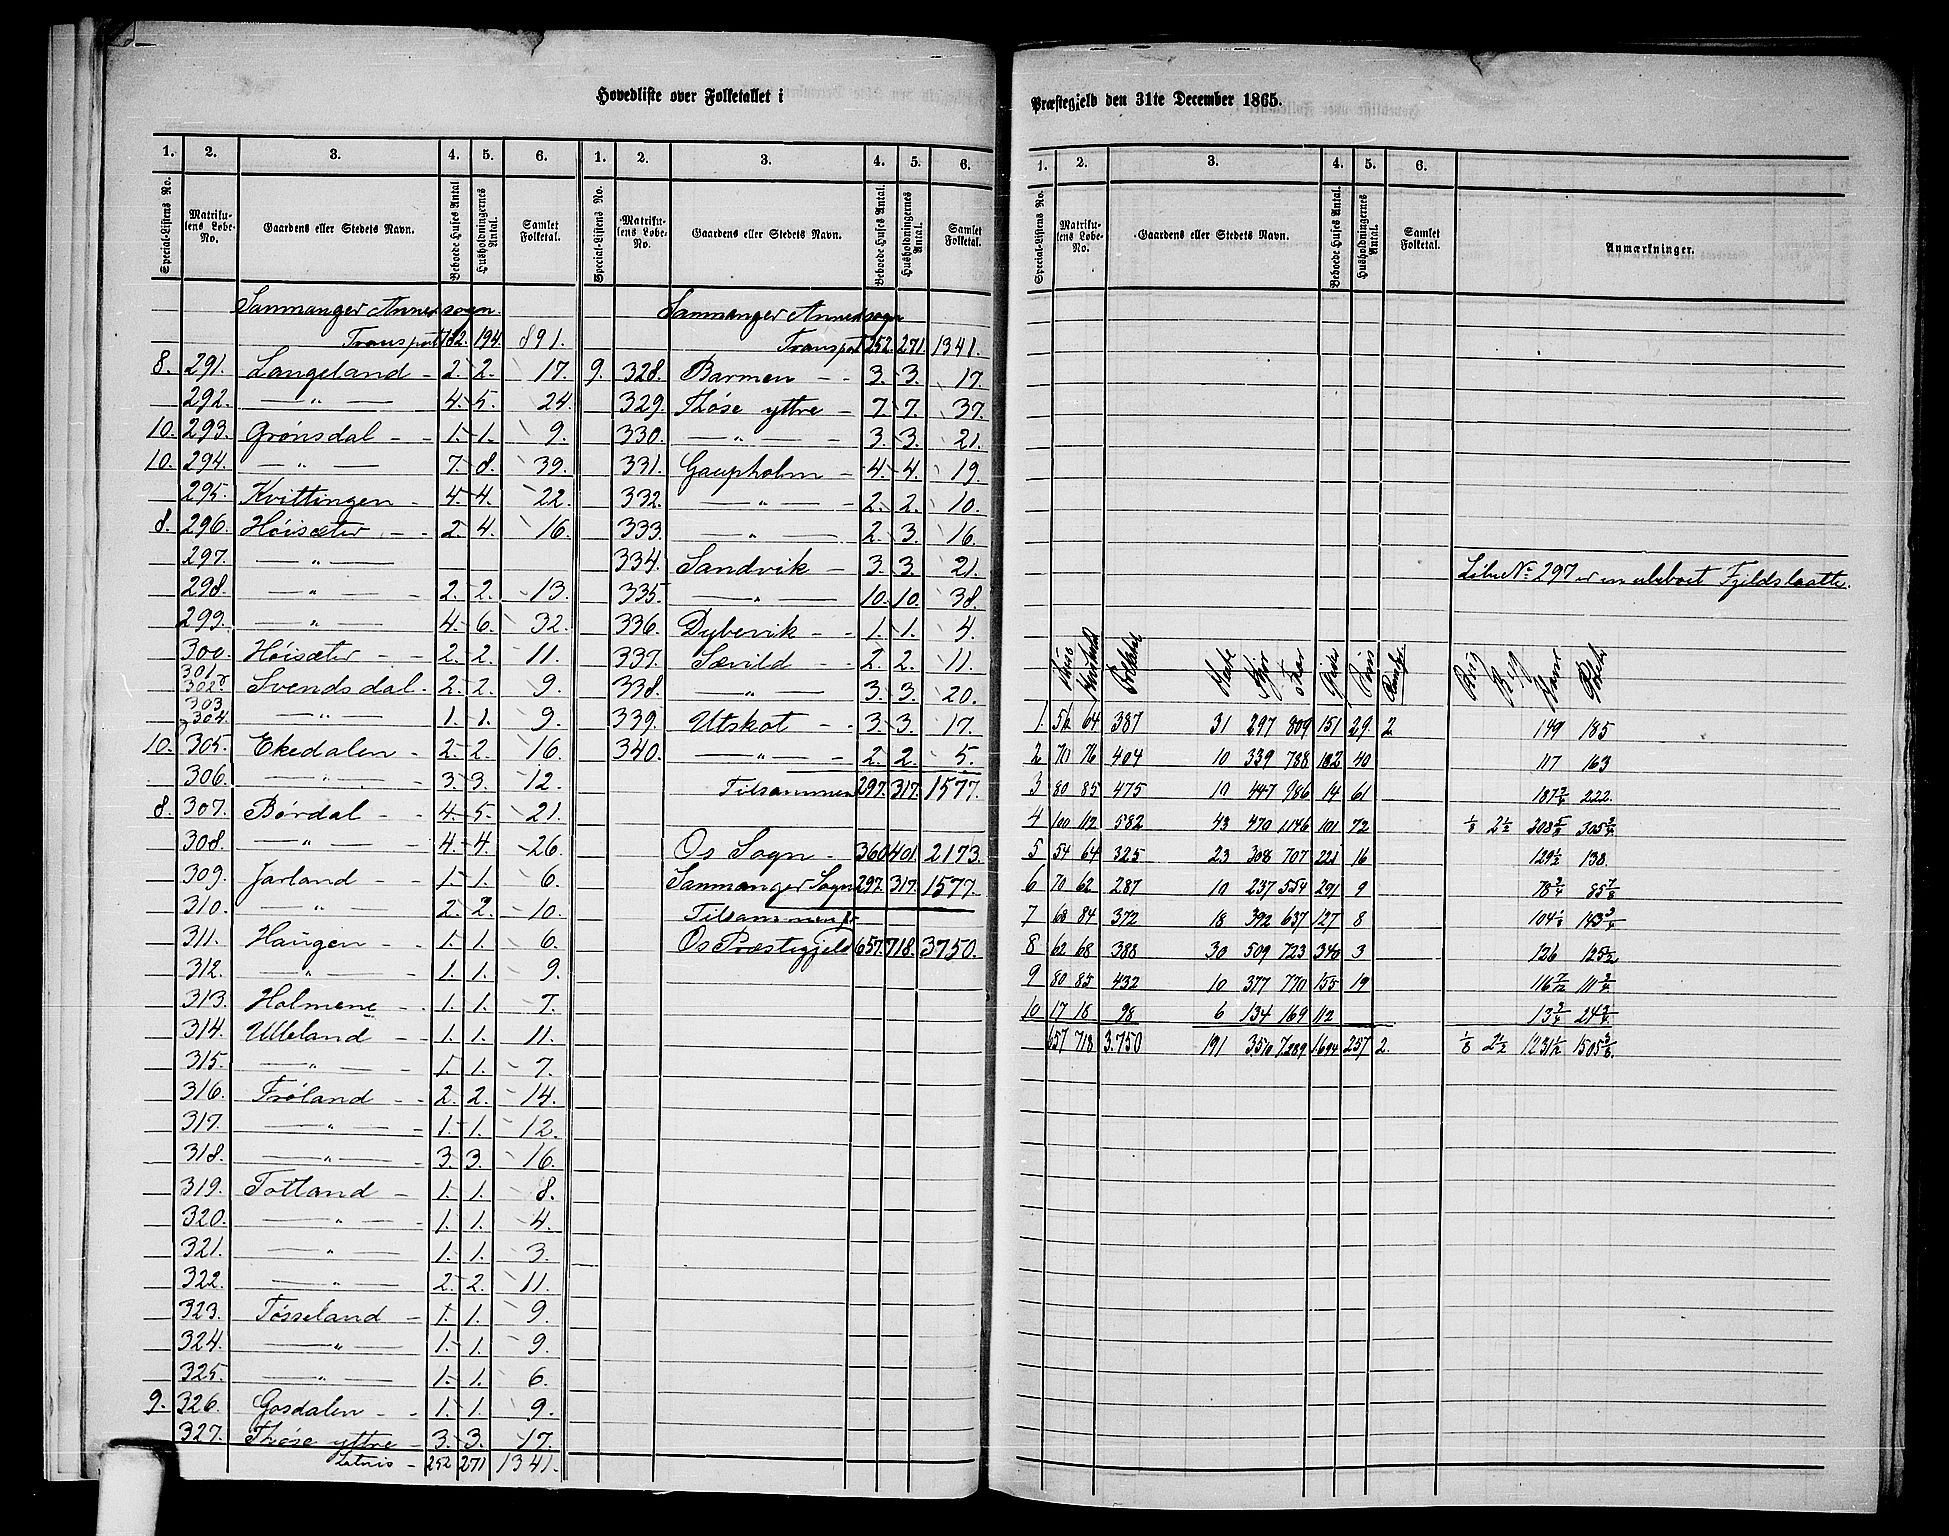 Hovedliste over Folketallet i
1. 2. 3. 4. 5. 6. 1. 2. 3. 4. 5. 6.
Special-Listens No. Matrikulens Løbe-No. Gaardens eller Stedets Navn. Beboede Huses Antal. Husholdningernes Antal. Samlet Folketal. Special-Listens No. Matrikulens Løbe-No. Gaardens eller Stedets Navn. Beboede Huses Antal. Husholdningernes Antal. Samlet Folketal.
Sammanger Annexsogn.
Transport 182. 194. 891.
8. 291. Langeland - 2. 2. 17.
292. — " — 4. 5. 24.
10. 293. Grønsdal - - 1. 1. 9.
10. 294. — " — 7. 8. 39.
295. Kvittingen - 4. 4. 22.
8. 296. Høisæter - - 2. 4. 16.
297. — " —
298. " 2. 2. 13.
299. — " — 4. 6. 32.
300. Høisæter - - 2. 2. 11.
301. 302. Svendsdal. 2. 2. 9.
303. 304. — " — 1. 1. 9.
10. 305. Ekedalen - 2. 2. 16.
306. — " — 3. 3. 12.
8. 307. Børdal - - 4. 5. 21.
308. — " — 4. 4. 26.
309. Jarland - - 1. 1. 6.
310. — " — 2. 2. 10.
311. Haugen - - 1. 1. 6.
312. — " — 1. 1. 9.
313. Holmene - 1. 1. 7.
314. Ulleland - 1. 1. 11.
315. — " — 1. 1. 7.
316. Frøland - - 2. 2. 14.
317. — " — 1. 1. 12.
318. — " — 3. 3. 16.
319. Totland - 1. 1. 8.
320. — " — 1. 1. 4.
321. — " — 1. 1. 3.
322. — " — 2. 2. 11.
323. Tøsseland - 1. 1. 9.
324. — " — 1. 1. 9.
325. — " — 1. 1. 6.
9. 326. Gosdalen - - 1. 1. 9.
327. Thøse yttre - 3. 3. 17.
Lateris - 252 271 1341.
Sammanger Annexsogn
Transport 252. 271. 1341.
9. 328. Barmen - - 3. 3. 17.
329. Thøse yttre - 7. 7. 37.
330. — " — 3. 3. 21.
331. Gaupholm - 4. 4. 19.
332. — " — 2. 2. 10.
333. — " — 2. 3. 16.
334. Sandvik - 3. 3. 21.
335. — " — 10. 10. 38.
336. Dybevik - - 1. 1. 4.
337. Sævild - - 2. 2. 11.
338. — " — 3. 3. 20.
339. Utskot - - 3. 3. 17.
340. — " — 2. 2. 5.
Tilsammen 297. 317. 1577.
Os Sogn - 360 401. 2173.
Sammanger Sogn 297. 317. 1577.
Tilsammen f.
Os Præstegjeld 657 718. 3750.
Præstegjeld den 31te December 1865.
1. 2. 3. 4. 5. 6.
Special-Listens No. Matrikulens Løbe-No. Gaardens eller Stedets Navn. Beboede Huses Antal. Husholdningernes Antal. Samlet Folketal. Anmærkninger.
Løbe No 297 er en ubeboet Fjeldslaatte.
Huse Folketal Heste Faar Svin Byg Rug Havre
1. 56 64 387 31 297 809 151 29. 2 149 185
2 70 76 404 10 339 788 182 40 117 163
3 80 85 475 10 447 986 14 61 187¾ 222.
4 100 112 582 43 470 1146 101 72 ⅛ 2½ 305¾
5 54 64 325 23 308 707 221 16 129½ 138.
6 70 62 287 10 237 554 291 9 78¾ 85⅞
7 68 84 372 18 392 637 127 8 104½ 143¾
8 62 68 388 30 509 723 340 3 126 125½
9 80 85 432 10 377 770 155 19 111¾
10 17 18 98 6 134 169 112 13¾ 24¾
657 718 3.750 191 3510 7289 1694 257 2. ⅛ 2½ 1231½ 1505⅜